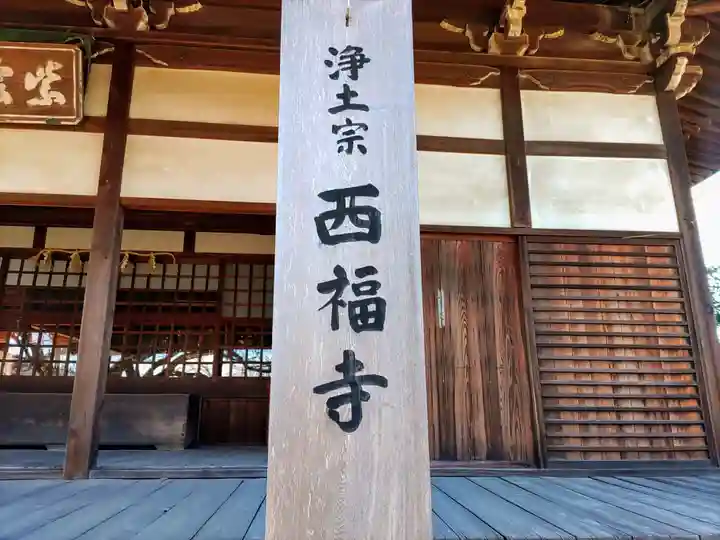 浄土宗
西福寺
紫雲